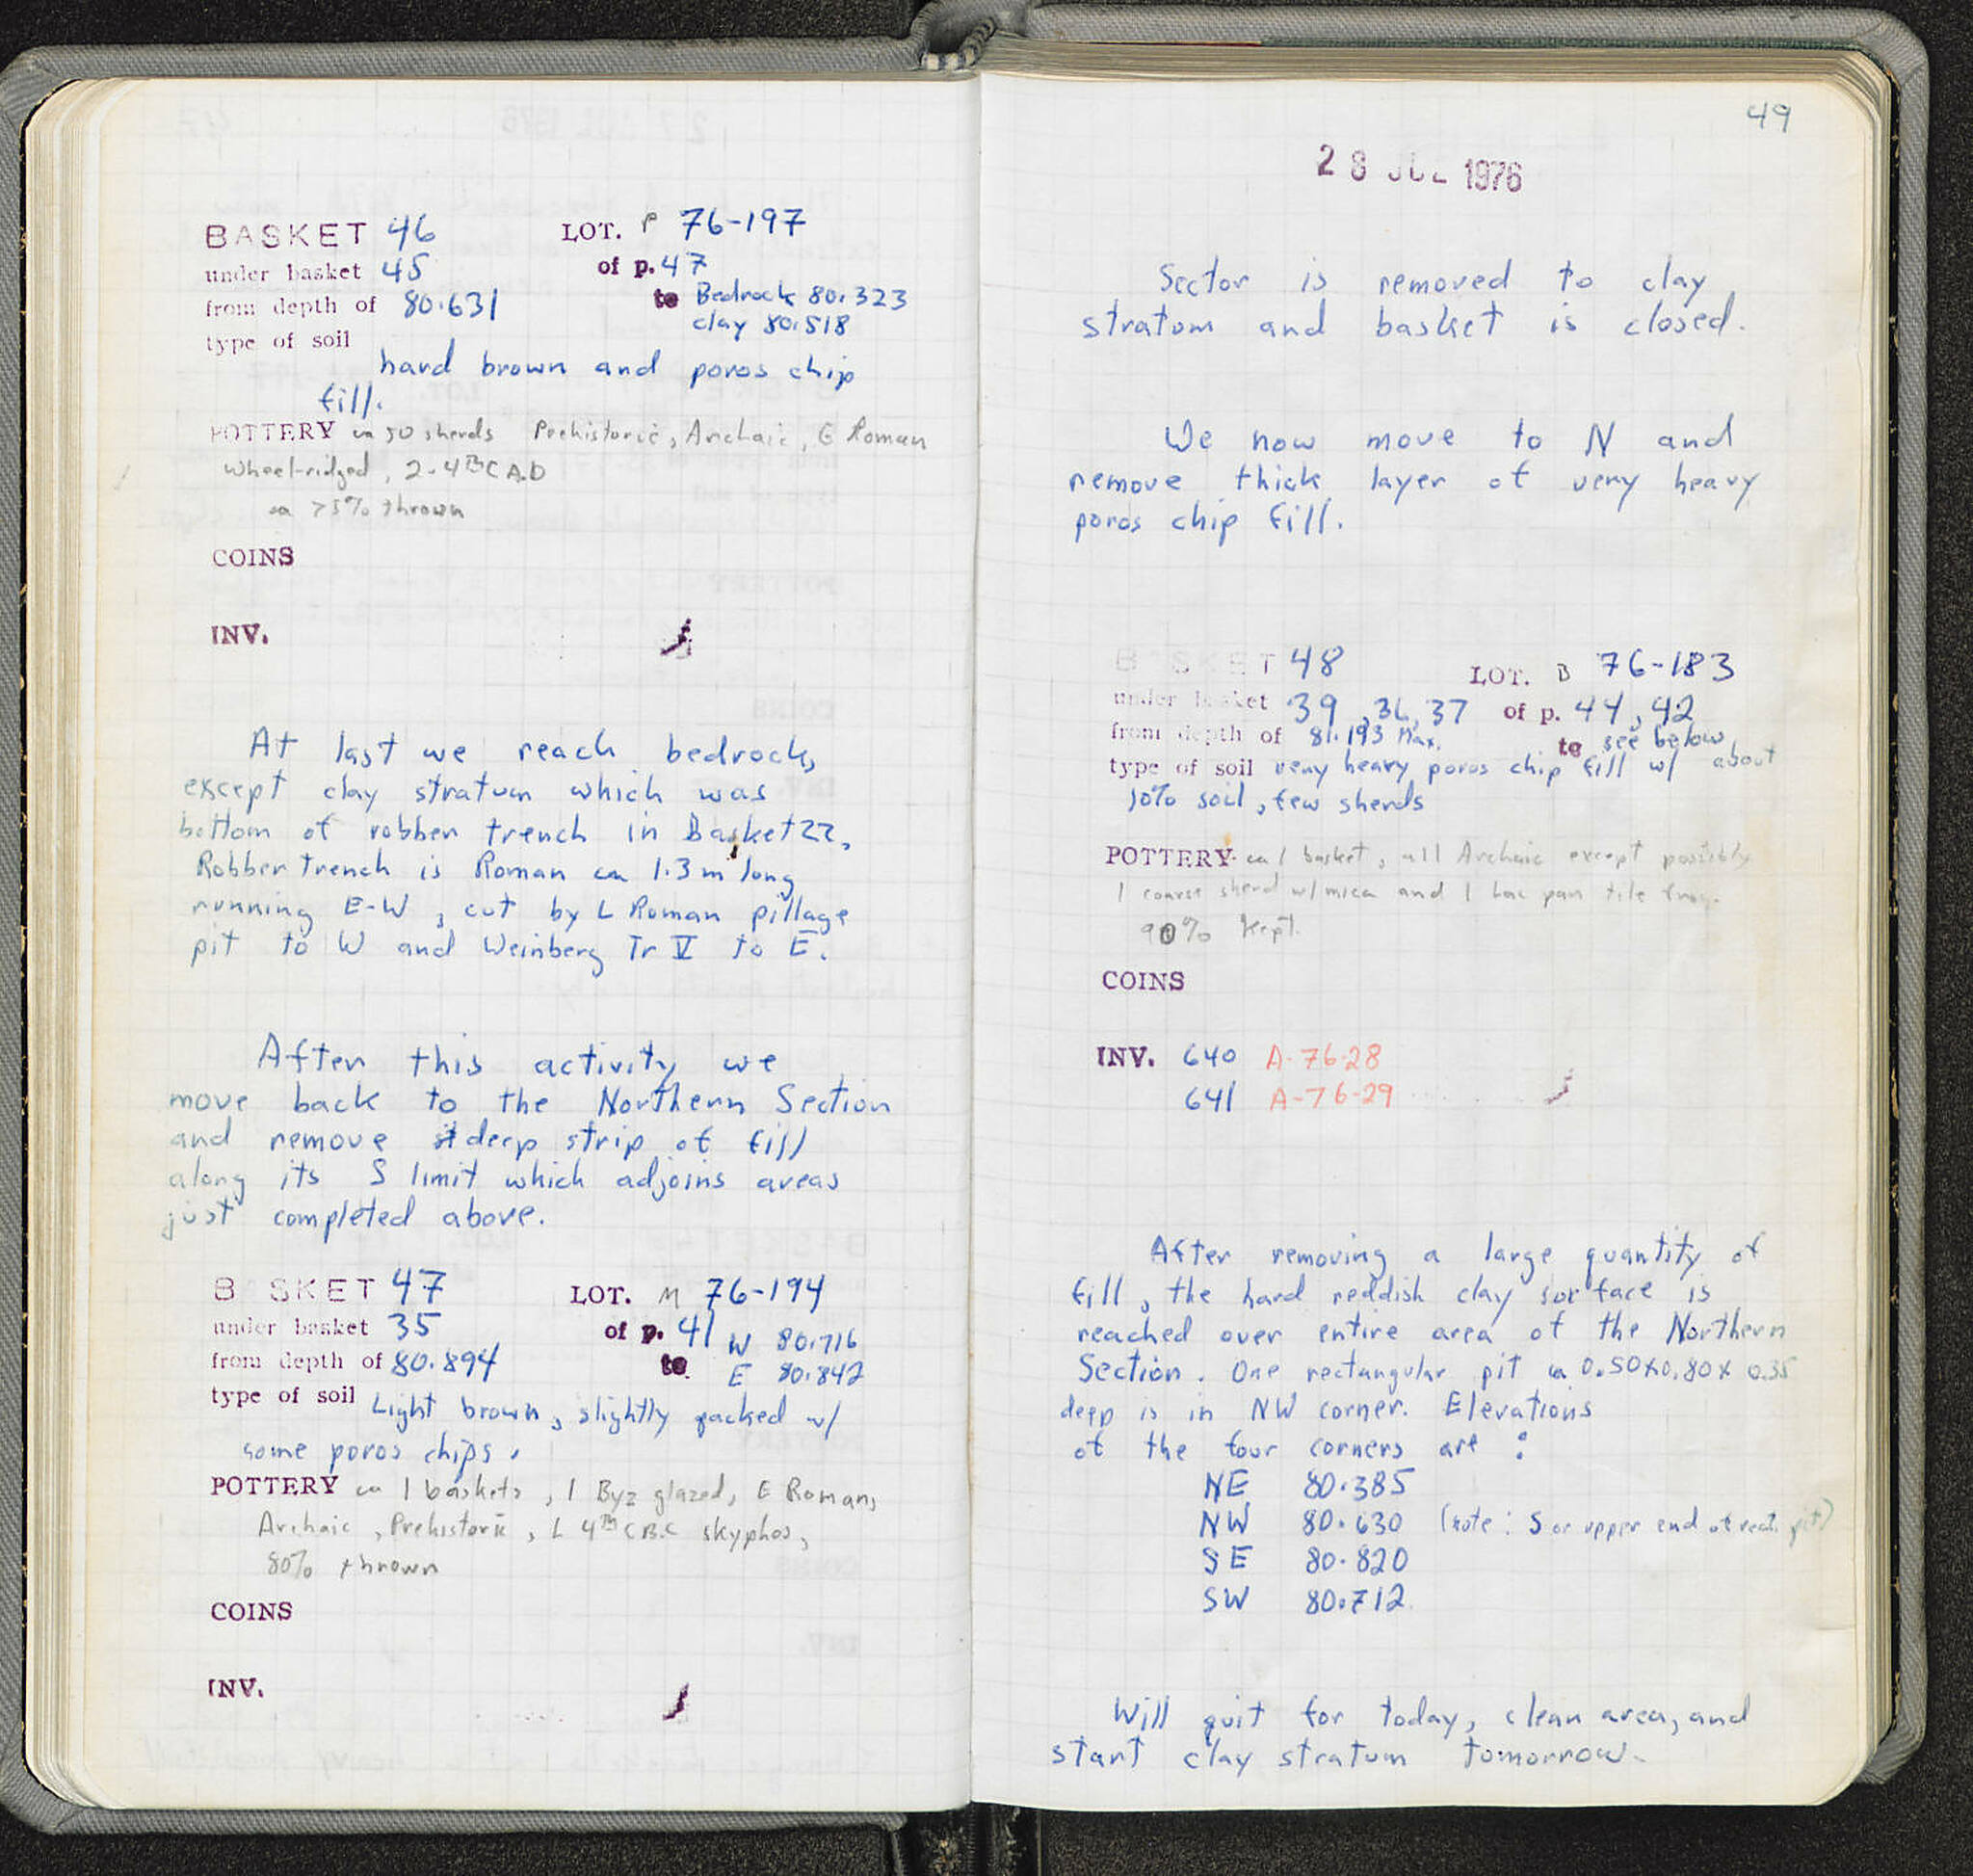 BASKET 46 LOT. P 76-197
under basket 45 of p. 47
from depth of 80.631 to Bedrock 80.323
clay 80.518
type of soil
hard brown and poros chip
fill.
POTTERY ca 50 sherds Prehistoric, Archaic, E Roman
wheel-ridged, 2-4th C A.D
ca 75% thrown
COINS
INV.
At last we reach bedrock,
except clay stratum which was
bottom of robber trench in Basket 22.
Robber trench is Roman ca 1.3 m long
running E-W, cut by L Roman pillage
pit to W and Weinberg Tr V to E.
After this activity we
move back to the Northern Section
and remove deep strip of fill
along its S limit which adjoins areas
just completed above.
BASKET 47 LOT. M 76-194
under basket 35 of p. 41
W 80.716
from depth of 80.894 to E 80.842
type of soil Light brown, slightly packed w/
some poros chips.
POTTERY ca 1 baskets, 1 Byz glazed, E Roman,
Archaic, Prehistoric, L 4th C B.C skyphos,
80% thrown
COINS
INV.
49
28 JUL 1976
Sector is removed to clay
stratum and basket is closed.
We now move to N and
remove thick layer of very heavy
poros chip fill.
BASKET 48 LOT. B 76-183
under basket 39, 36, 37 of p. 44, 42
from depth of 81.193 Max. to see below
type of soil very heavy poros chip fill w/ about
10% soil, few sherds
POTTERY ca 1 basket, all Archaic except possibly
1 coarse sherd w/mica and 1 Lac pan tile frag.
90% kept.
COINS
INV. 640 A-76-28
641 A-76-29
After removing a large quantity of
fill, the hard reddish clay surface is
reached over entire area of the Northern
Section. One rectangular pit ca 0.50x0.80x 0.35
deep is in NW corner. Elevations
of the four corners are :
NE 80.385
NW 80.630 (note: S or upper end of rect. pit)
SE 80.820
SW 80.712
Will quit for today, clean area, and
start clay stratum tomorrow.